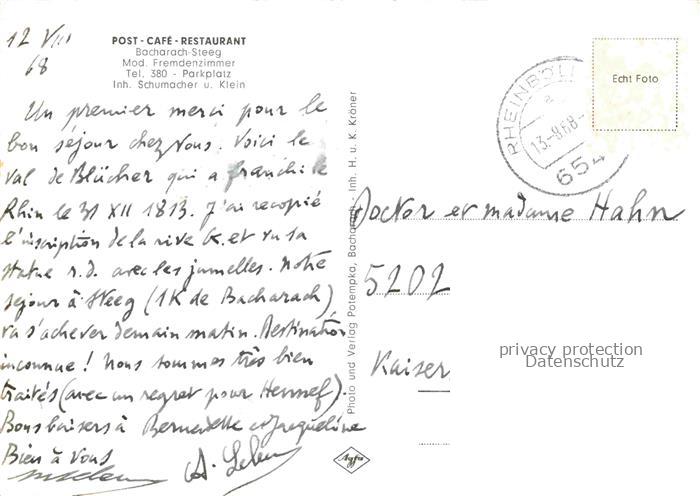 12 VIII
68
POST - CAFÉ - RESTAURANT
Bacharach-Steeg
Mod. Fremdenzimmer
Tel. 380 - Parkplatz
Inh. Schumacher u. Klein
Un premier merci pour le
bon séjour chez vous. Voici le
val de Blücher qui a franchi le
Rhin le 31 XII 1813. J'ai recopié
l'inscription de la rive g. et vu sa
statue r.d. avec les jumelles. Notre
séjour à Steeg (1K de Bacharach)
va s'achever demain matin. Destination
inconnue ! Nous sommes très bien
traités (avec un regret pour Hennef).
Bons baisers à Bernadette et Jacqueline
Bien à vous
A.
Photo und Verlag Potempka, Bacharach - Inh. H. u. K. Kröner
Agfa
RHEINBÖLL
a
13.-8.68.-
654
Echt Foto
Doctor et madame Hahn
5202
Kaiser
privacy protection
Datenschutz